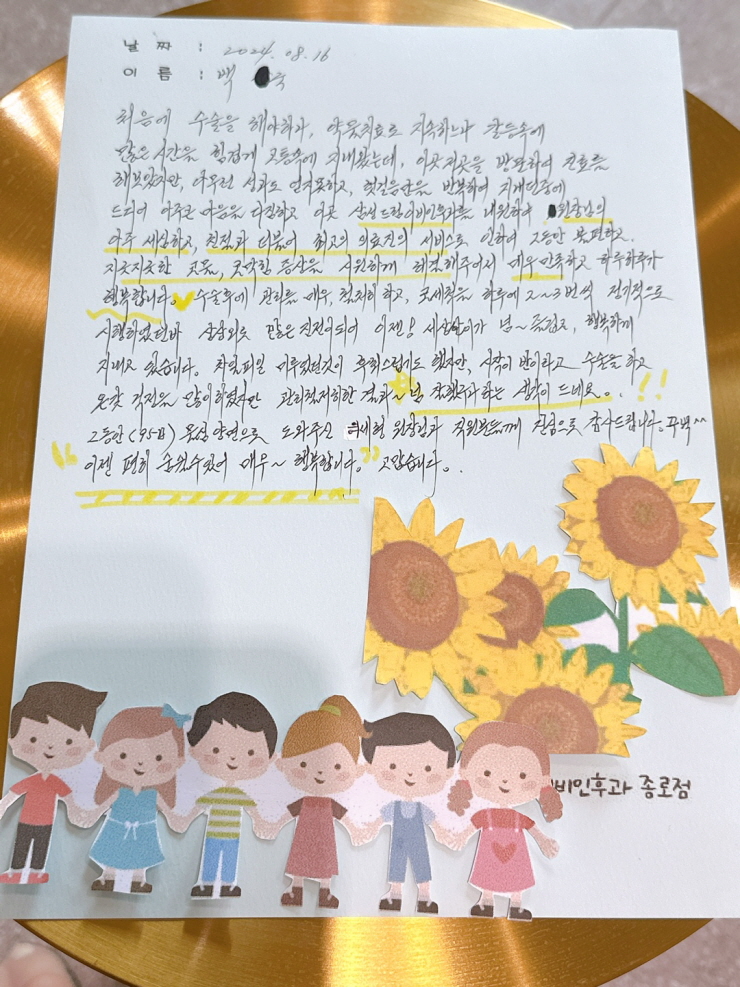 날 짜 : 2024. 08. 16
이 름 : 백 숙
처음에 수술을 해야하나, 약물치료로 지속하느냐 갈등속에
많은 시간을 힘겹게 고통속에 지내왔는데, 이곳저곳을 방문하여 진료를
해보았지만, 아무런 성과도 얻지못하고, 헛걸음만을 반복하며 지내던중에
드디어 아주큰 마음을 다짐하고 이곳 삼성드림이비인후과를 내원하여 원장님의
아주 세심하고, 친절과 더불어 최고의 의료진의 서비스로 인하여 그동안 불편하고
지긋지긋한 고통, 코막힘 증상을 시원하게 해결해주어서 매우 만족하고 하루하루가
행복합니다. 수술후에 관리를 매우, 철저히 하고, 코세척을 하루에 2~3번씩 정기적으로
시행하였던바 상상외로 많은 진전이되어 이젠! 세상살이가 넘~ 즐겁고, 행복하게
지내고 있습니다. 차일피일 미루었던것이 후회스럽기도 했지만, 시작이 반이라고 수술을 하고
온갖 걱정은 많이하였지만 관리철저히한 결과~ 넘 잘했구나 하는 생각이 드네요. !!
그동안 (95日) 물심양면으로 도와주신 세형 원장님과 직원분들께 진심으로 감사드립니다. 꾸벅^^
"이젠 편히 숨쉴수있어 매우~ 행복합니다." 고맙습니다.
비인후과 종로점